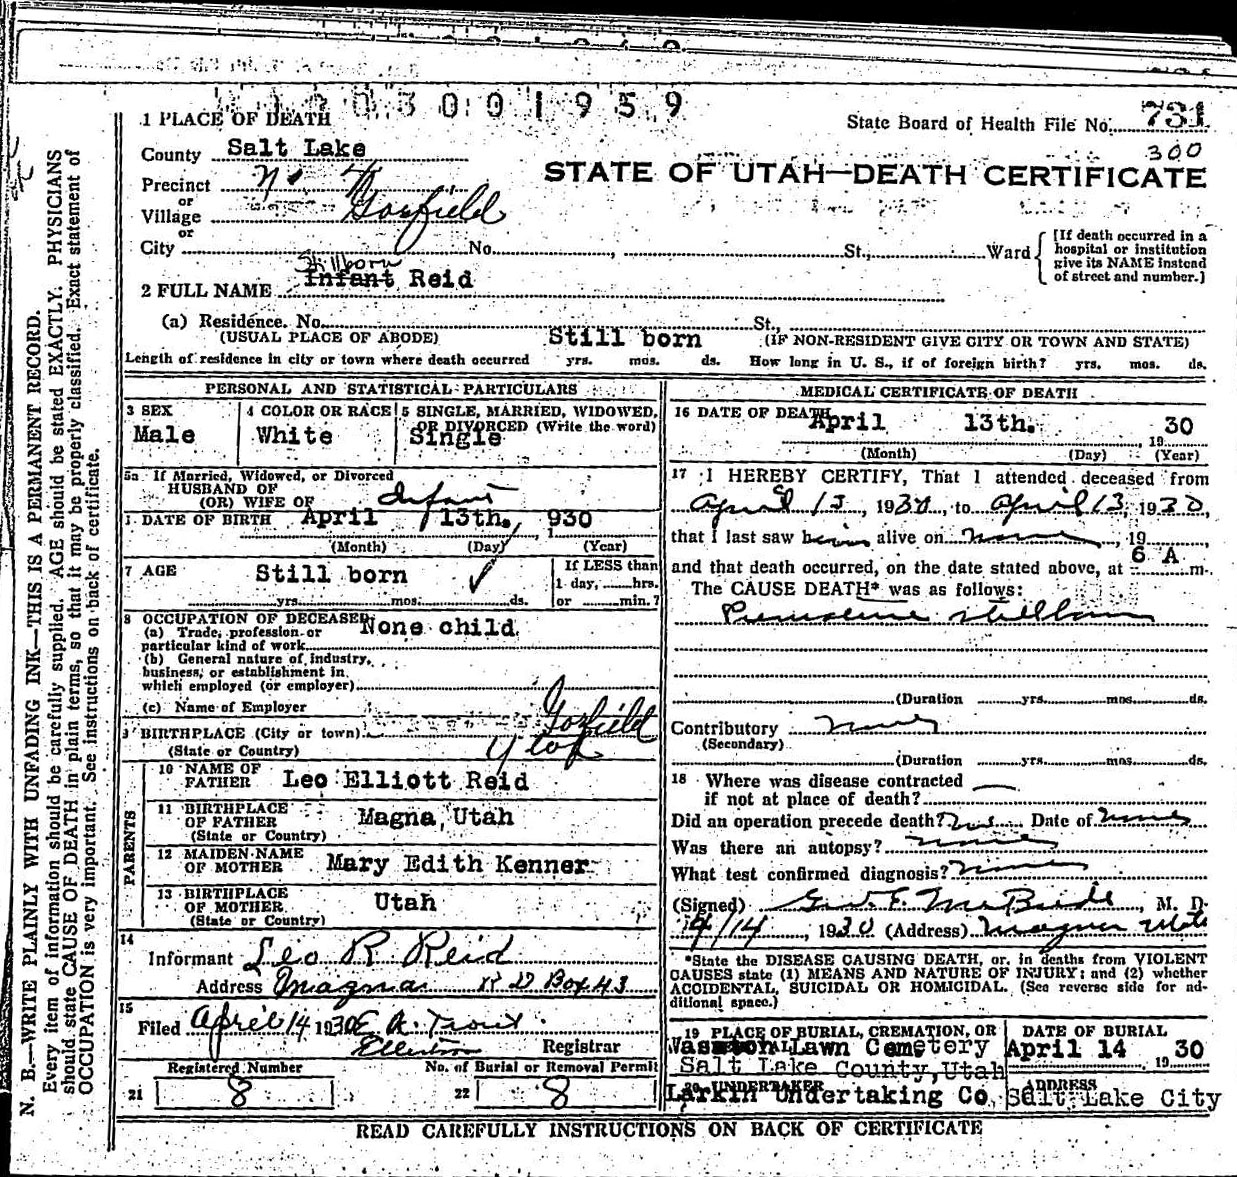 300 1959
1 PLACE OF DEATH
State Board of Health File No. 731
300
County Salt Lake
STATE OF UTAH—DEATH CERTIFICATE
Precinct No. 4
or
Village Garfield
or
City No. St., Ward
[If death occurred in a hospital or institution give its NAME instead of street and number.]
Stillborn
2 FULL NAME Infant Reid
(a) Residence. No. St.,
(USUAL PLACE OF ABODE) Still born (IF NON-RESIDENT GIVE CITY OR TOWN AND STATE)
Length of residence in city or town where death occurred yrs. mos. ds. How long in U. S., if of foreign birth? yrs. mos. ds.
PERSONAL AND STATISTICAL PARTICULARS
3 SEX
Male
4 COLOR OR RACE
White
5 SINGLE, MARRIED, WIDOWED,
OR DIVORCED (Write the word)
Single
5a If Married, Widowed, or Divorced
HUSBAND OF
(OR) WIFE OF Infant
DATE OF BIRTH April 13th., 1930
(Month) (Day) (Year)
7 AGE Still born
yrs. mos. ds.
If LESS than
1 day, hrs.
or min.?
8 OCCUPATION OF DECEASED None child
(a) Trade, profession or
particular kind of work
(b) General nature of industry,
business, or establishment in
which employed (or employer)
(c) Name of Employer
9 BIRTHPLACE (City or town) Garfield
(State or Country) Utah
PARENTS
10 NAME OF
FATHER Leo Elliott Reid
11 BIRTHPLACE
OF FATHER Magna, Utah
(State or Country)
12 MAIDEN NAME
OF MOTHER Mary Edith Kenner
13 BIRTHPLACE
OF MOTHER Utah
(State or Country)
14
Informant Leo R Reid
Address Magna R D Box 43
15
Filed April 14 1930 E A. Trout
Registrar
Registered Number
21 8
No. of Burial or Removal Permit
22 8
MEDICAL CERTIFICATE OF DEATH
16 DATE OF DEATH April 13th. 1930
(Month) (Day) (Year)
17 I HEREBY CERTIFY, That I attended deceased from
April 13, 1930, to April 13, 1930,
that I last saw him alive on none, 19
and that death occurred, on the date stated above, at 6 A m.
The CAUSE DEATH* was as follows:
Premature stillborn
(Duration yrs. mos. ds.
Contributory none
(Secondary)
(Duration yrs. mos. ds.
18 Where was disease contracted
if not at place of death?
Did an operation precede death? no Date of none
Was there an autopsy? none
What test confirmed diagnosis? none
(Signed) Geo. E. McBride, M. D.
4/14, 1930 (Address) Magna Utah
*State the DISEASE CAUSING DEATH, or, in deaths from VIOLENT
CAUSES state (1) MEANS AND NATURE OF INJURY; and (2) whether
ACCIDENTAL, SUICIDAL OR HOMICIDAL. (See reverse side for ad-
ditional space.)
19 PLACE OF BURIAL, CREMATION, OR
Wasatch Lawn Cemetery
Salt Lake County, Utah
DATE OF BURIAL
April 14 1930
20 UNDERTAKER
Larkin Undertaking Co.,
ADDRESS
Salt Lake City
READ CAREFULLY INSTRUCTIONS ON BACK OF CERTIFICATE
N. B.—WRITE PLAINLY WITH UNFADING INK—THIS IS A PERMANENT RECORD.
Every item of information should be carefully supplied. AGE should be stated EXACTLY. PHYSICIANS
should state CAUSE OF DEATH in plain terms, so that it may be properly classified. Exact statement of
OCCUPATION is very important. See instructions on back of certificate.